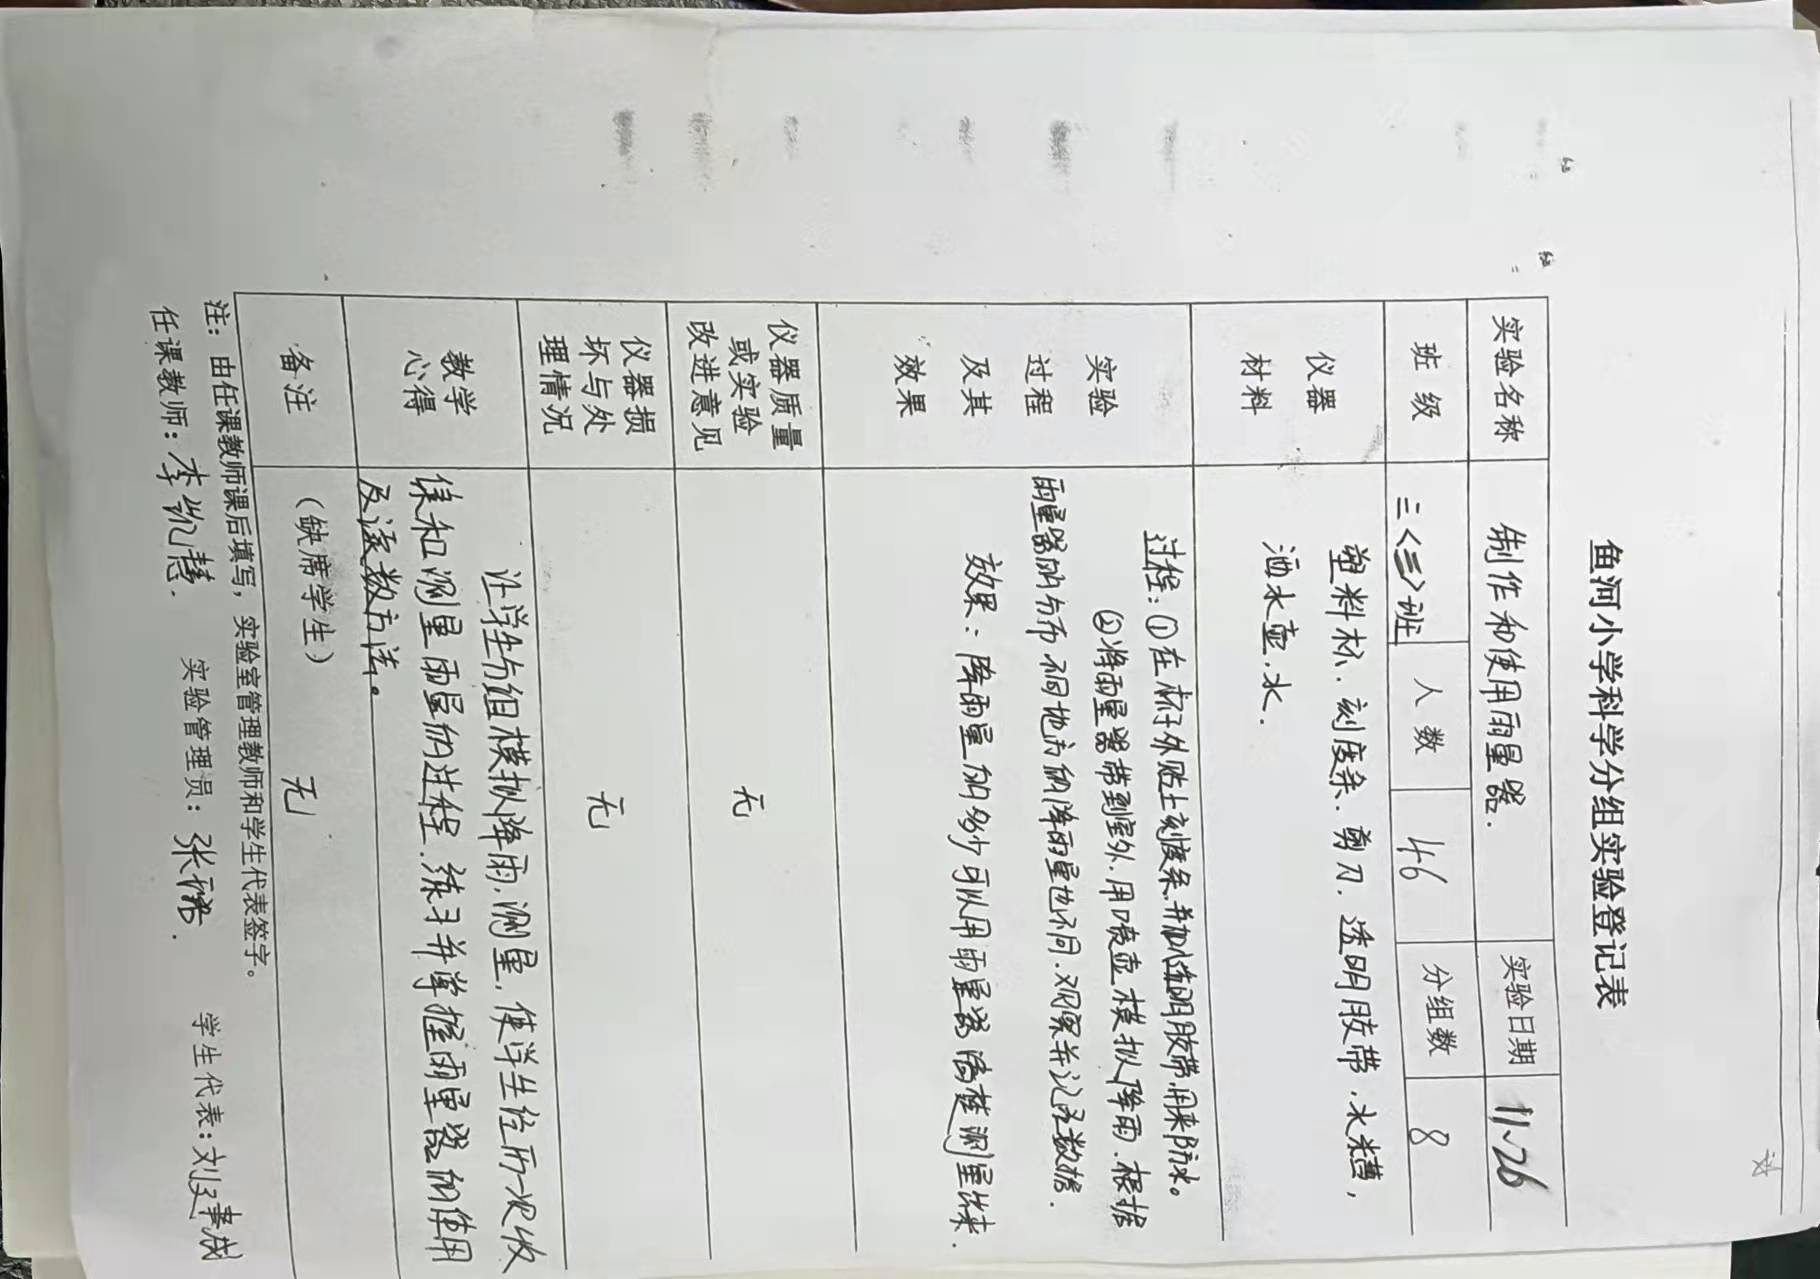 鱼河小学科学分组实验登记表
实验名称 制作和使用雨量器. 实验日期 11、26
班级 三<三>班 人数 46 分组数 8
仪器 塑料杯、刻度条、剪刀、透明胶带、水槽,
材料 洒水壶、水.
实验 过程:①在杯子外贴上刻度条,并加透明胶带,用来防水。
②将雨量器带到室外,用喷壶模拟降雨,根据
过程 雨量器的分布,不同地方的降雨量也不同,观察并记录数据.
及其 效果:降雨量的多少可以用雨量器测量出来.
效果
仪器质量
或实验 无
改进意见
仪器损
坏与处 无
理情况
教学 让学生分组模拟降雨、测量,使学生经历一次收
心得 集和测量雨量的过程,练习并掌握雨量器的使用
及读数方法。
备注 (缺席学生) 无
注:由任课教师课后填写,实验室管理教师和学生代表签字。
任课教师:李凯慧. 实验管理员:张 学生代表:刘